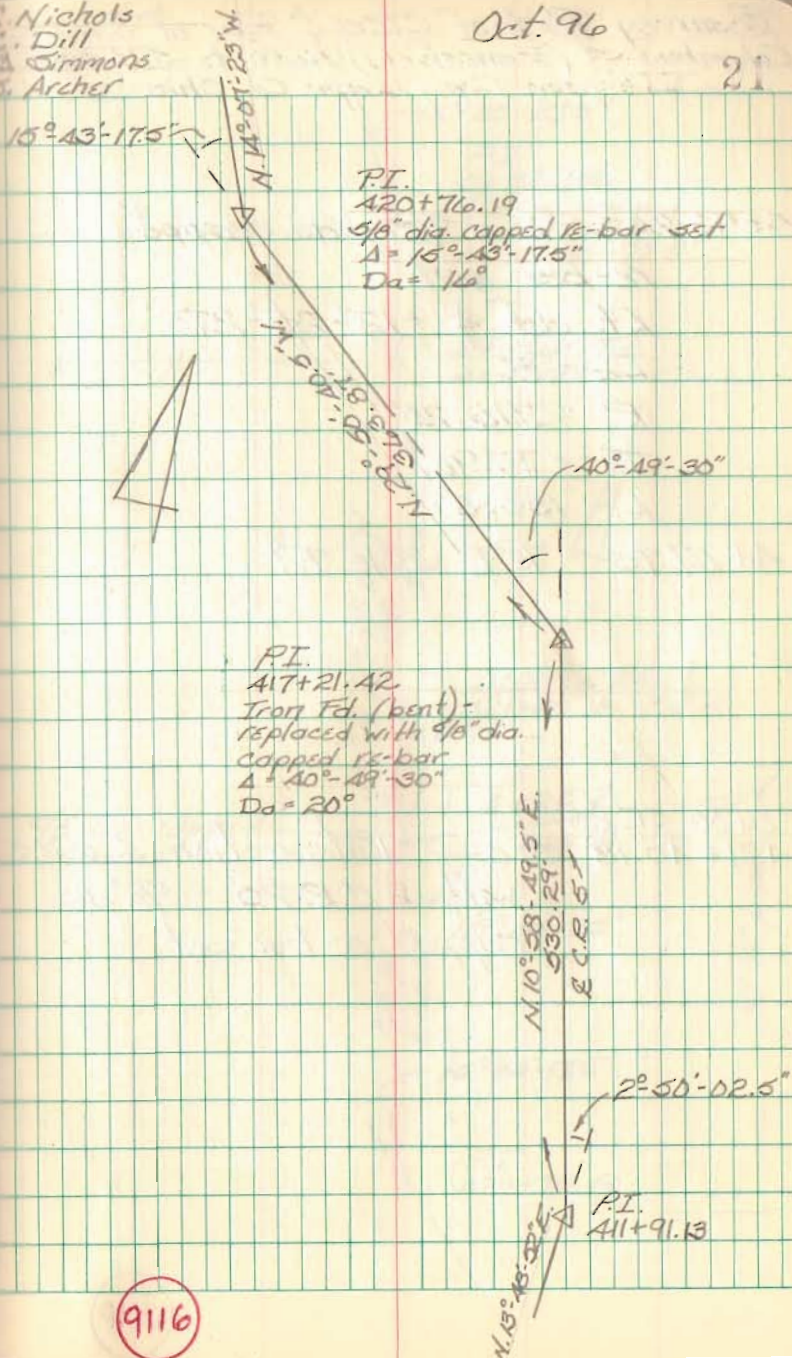 Nichols
Dill
Simmons
Archer
Oct. 96
21
15°-43'-17.5"
N.14°-07'-23"W.
P.I.
420+76.19
5/8" dia. capped re-bar set
Δ = 15°-43'-17.5"
Da = 16°
N.29°-50'-40.5"W.
363.87'
40°-49'-30"
P.I.
417+21.42
Iron Fd. (bent)-
replaced with 5/8" dia.
capped re-bar
Δ = 40°-49'-30"
Da = 20°
N.10°-58'-49.5"E.
530.29'
C.R. 57
2°-50'-02.5"
P.I.
411+91.13
N.13°-48'-52"E.
9116